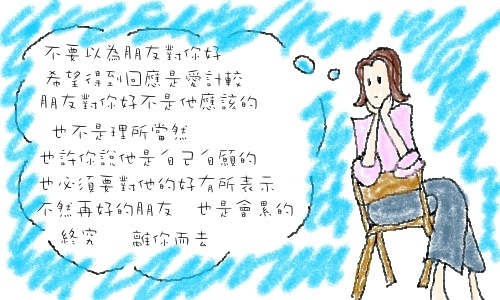 不要以為朋友對你好
希望得到回應是愛計較
朋友對你好不是他應該的
也不是理所當然
也許你說他是自己自願的
也必須要對他的好有所表示
不然再好的朋友 也是會累的
終究 離你而去